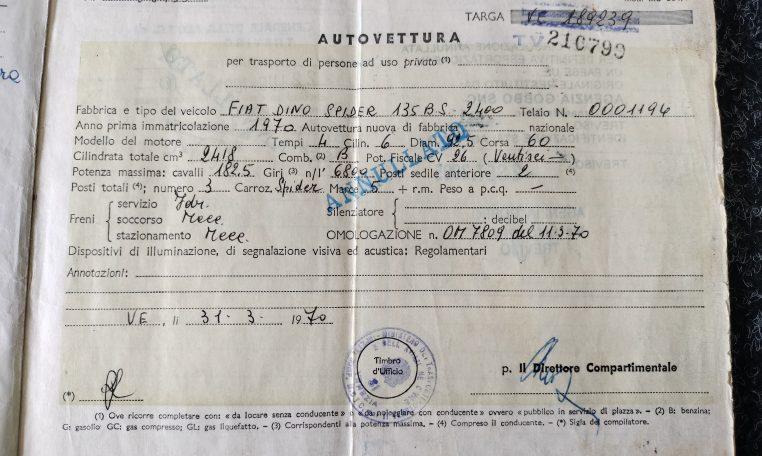 TARGA VE 289239
VT
210799
AUTOVETTURA
per trasporto di persone ad uso privato (¹)
Fabbrica e tipo del veicolo FIAT DINO SPIDER 135BS-2400 Telaio N. 0001194
Anno prima immatricolazione 1970 Autovettura nuova di fabbrica nazionale
Modello del motore Tempi 4 Cilin. 6 Diam. 92.5 Corsa 60
Cilindrata totale cm³ 2418 Comb. (²) B Pot. Fiscale CV 26 (Ventisei)
Potenza massima: cavalli 182.5 Giri (³) n/1' 6800 Posti sedile anteriore 2 (⁴)
Posti totali (⁴); numero 3 Carroz. Spider Marce 5 + r.m. Peso a p.c.q. —
Freni servizio Idr. Silenziatore
soccorso Mecc. : decibel
stazionamento Mecc. OMOLOGAZIONE n. OM 7809 del 11-3-70
ANNULLATO
Dispositivi di illuminazione, di segnalazione visiva ed acustica: Regolamentari
Annotazioni:
VE, li 31-3-1970
Timbro
d'Ufficio
p. Il Direttore Compartimentale
(*)
(1) Ove ricorre completare con: « da locare senza conducente » o « da noleggiare con conducente » ovvero « pubblico in servizio di piazza ». – (2) B: benzina;
G: gasolio GC: gas compresso; GL: gas liquefatto. – (3) Corrispondenti alla potenza massima. – (4) Compreso il conducente. – (*) Sigla del compilatore.